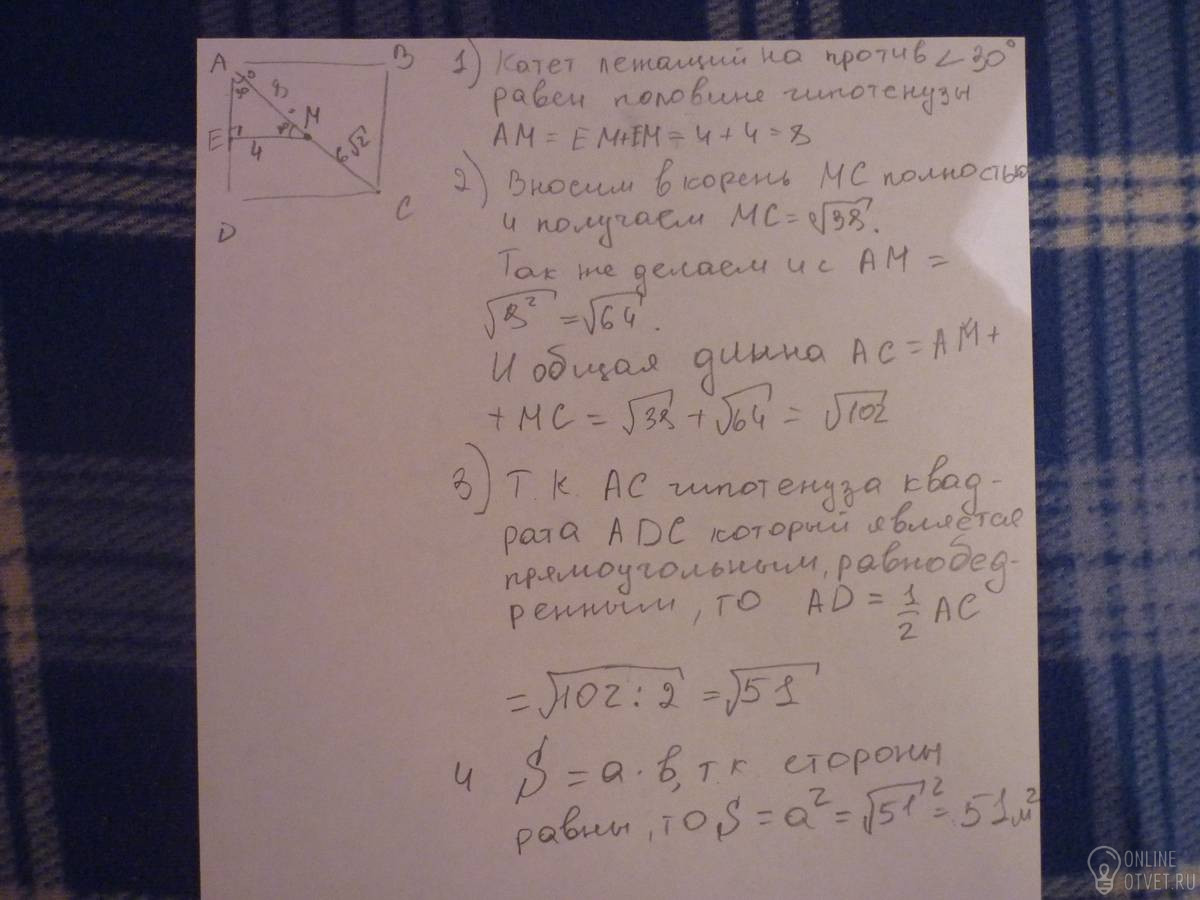 A B
M
E
4
6√2
D C
1) Катет лежащий на против ∠30°
равен половине гипотенузы
AM = EM+EM = 4+4=8
2) Вносим в корень MC полностью
и получаем MC = √38.
Так же делаем и с AM =
√8² = √64.
И общая длинна AC = AM+
+ MC = √38 + √64 = √102
3) Т.к. AC гипотенуза квад-
рата ADC который является
прямоугольным, равнобед-
ренным, то AD = 1/2 AC
= √102:2 = √51
4 S = a·в, т.к. стороны
равны, то S = a² = √51² = 51м²
ONLINE
OTVET.RU